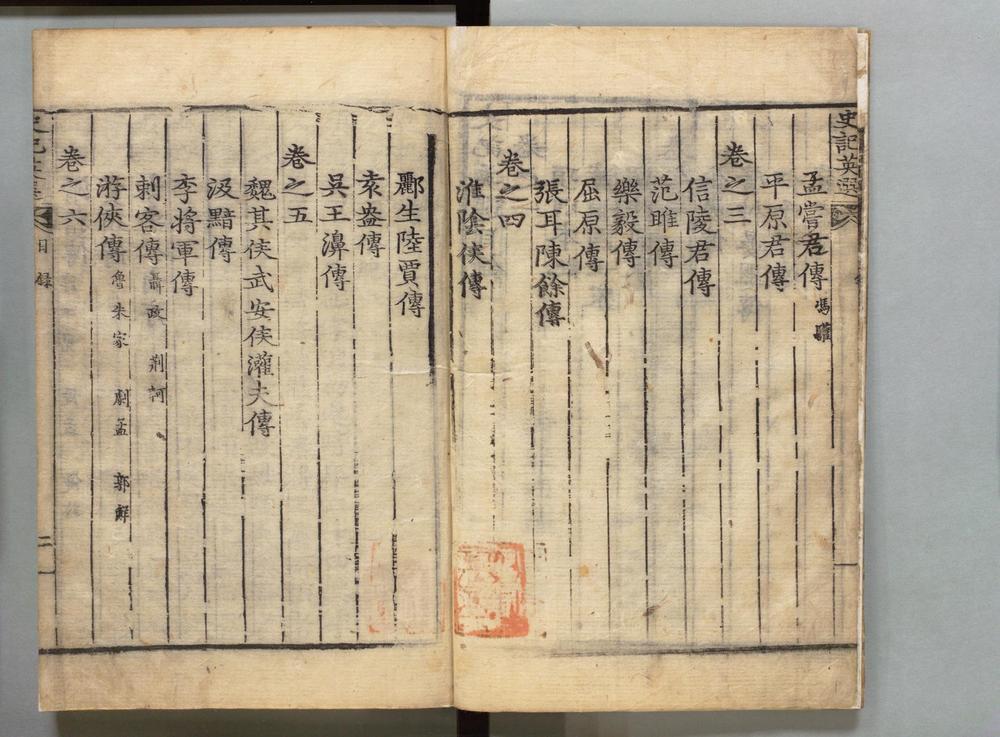 史記英選
孟嘗君傳 馮驩
平原君傳
卷之三
信陵君傳
范雎傳
樂毅傳
屈原傳
張耳陳餘傳
卷之四
淮陰侯傳
酈生陸賈傳
袁盎傳
吳王濞傳
卷之五
魏其侯武安侯灌夫傳
汲黯傳
李將軍傳
刺客傳 聶政 荊軻
游俠傳 魯朱家 劇孟 郭解
卷之六
史記英選 目錄 二